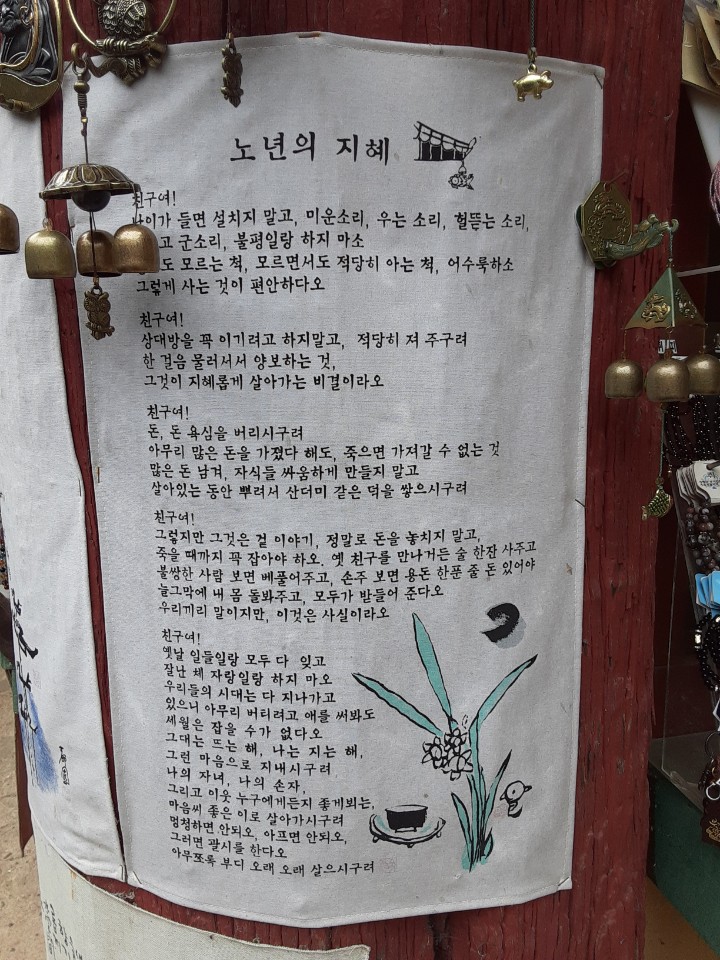 노년의 지혜
친구여!
나이가 들면 설치지 말고, 미운소리, 우는 소리, 헐뜯는 소리,
고 군소리, 불평일랑 하지 마소
도 모르는 척, 모르면서도 적당히 아는 척, 어수룩하소
그렇게 사는 것이 편안하다오
친구여!
상대방을 꼭 이기려고 하지말고, 적당히 져 주구려
한 걸음 물러서서 양보하는 것,
그것이 지혜롭게 살아가는 비결이라오
친구여!
돈, 돈 욕심을 버리시구려
아무리 많은 돈을 가졌다 해도, 죽으면 가져갈 수 없는 것
많은 돈 남겨, 자식들 싸움하게 만들지 말고
살아있는 동안 뿌려서 산더미 같은 덕을 쌓으시구려
친구여!
그렇지만 그것은 겉 이야기, 정말로 돈을 놓치지 말고,
죽을 때까지 꼭 잡아야 하오. 옛 친구를 만나거든 술 한잔 사주고
불쌍한 사람 보면 베풀어주고, 손주 보면 용돈 한푼 줄 돈 있어야
늘그막에 내 몸 돌봐주고, 모두가 받들어 준다오
우리끼리 말이지만, 이것은 사실이라오
친구여!
옛날 일들일랑 모두 다 잊고
잘난 체 자랑일랑 하지 마오
우리들의 시대는 다 지나가고
있으니 아무리 버티려고 애를 써봐도
세월은 잡을 수가 없다오
그대는 뜨는 해, 나는 지는 해,
그런 마음으로 지내시구려
나의 자녀, 나의 손자,
그리고 이웃 누구에게든지 좋게뵈는,
마음씨 좋은 이로 살아가시구려
멍청하면 안되오, 아프면 안되오,
그러면 괄시를 한다오
아무쪼록 부디 오래 오래 살으시구려